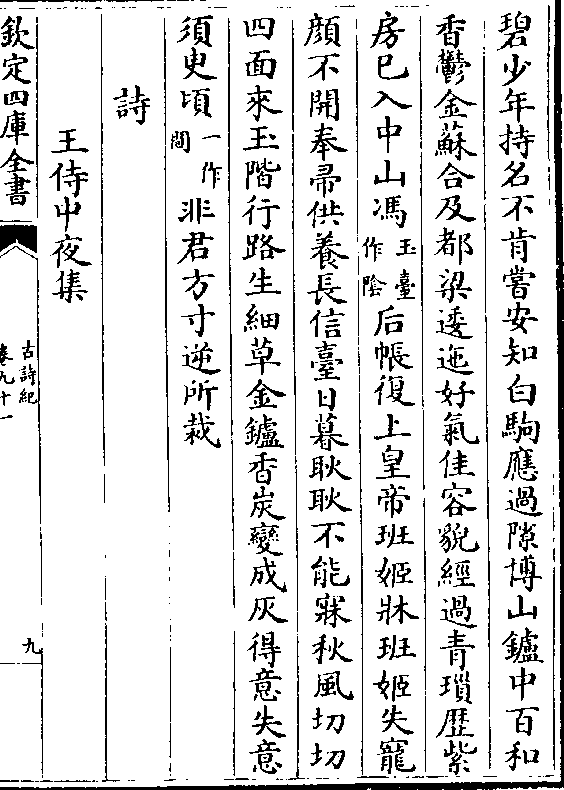 碧少年持名不肯嘗安知白駒應過隙博山鑪中百和
香鬱金蘇合及都梁逶迤好氣佳容貌經過青瑣歴紫
房已入中山馮玉臺作陰后帳復上皇帝班姬牀班姬失寵
顔不開奉帚供養長信臺日暮耿耿不能寐秋風切切
四面來玉階行路生細草金鑪香炭變成灰得意失意
須臾頃一作間非君方寸逆所裁
詩
王侍中夜集
欽定四庫全書
古詩紀
卷九十一
九